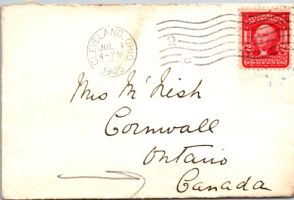 CLEVELAND, OHIO
JUL 1
4-PM
1905
Mrs McNish
Cornwall
Ontario
Canada